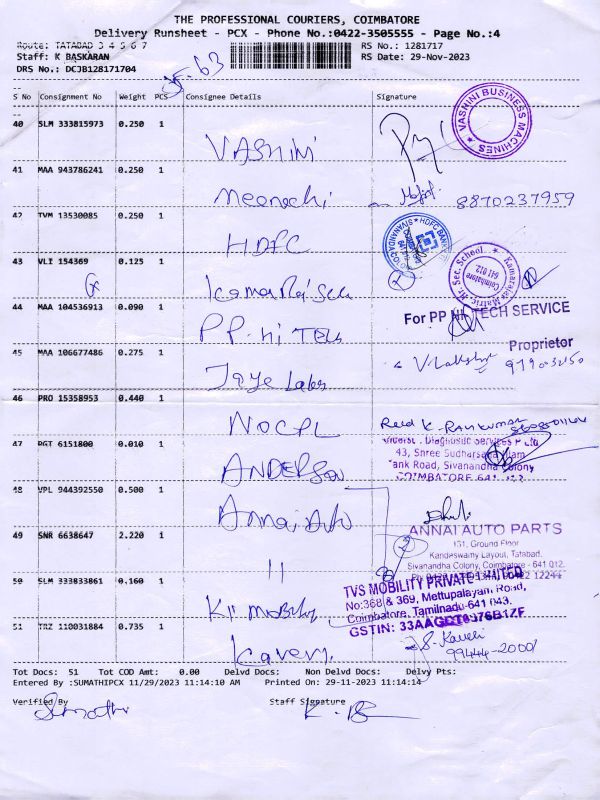 THE PROFESSIONAL COURIERS, COIMBATORE
Delivery Runsheet - PCX - Phone No.:0422-3505555 - Page No.:4
Route: TATABAD 3 4 5 6 7
RS No.: 1281717
Staff: K BASKARAN
RS Date: 29-Nov-2023
DRS No.: DCJB128171704
S No Consignment No Weight PCS Consignee Details Signature
40 SLM 333815973 0.250 1
VASHINI
VASHINI BUSINESS MACHINES
41 MAA 943786241 0.250 1
Meenachi
8870237959
42 TVM 13530085 0.250 1
HDFC
HDFC BANK
43 VLI 154369 0.125 1
Kamaraj Matric. Hr. Sec. School
Coimbatore
641 012
44 MAA 104536913 0.090 1
PP-Hi Tech
For PP HI TECH SERVICE
Proprietor
45 MAA 106677486 0.275 1
Jaye Labs
46 PRO 15358953 0.440 1
NOCPL
47 PGT 6151800 0.010 1
ANDERSON
Diagnostic Services P Ltd
43, Shree
Tank Road, Sivanandha Colony
COIMBATORE
48 VPL 944392550 0.500 1
Annai Auto
49 SNR 6638647 2.220 1
"
ANNAI AUTO PARTS
131, Ground Floor
Kandeswamy Layout, Tatabad.
Sivanandha Colony, Coimbatore - 641 012.
50 SLM 333833861 0.160 1
TVS MOBILITY PRIVATE LIMITED
No:368 & 369, Mettupalayam Road,
Coimbatore, Tamilnadu-641 043.
51 TRZ 110031884 0.735 1
Kavery
Tot Docs: 51 Tot COD Amt: 0.00 Delvd Docs: Non Delvd Docs: Delvy Pts:
Entered By :SUMATHIPCX 11/29/2023 11:14:10 AM Printed On: 29-11-2023 11:14:14
Verified By
Staff Signature
Sumathi